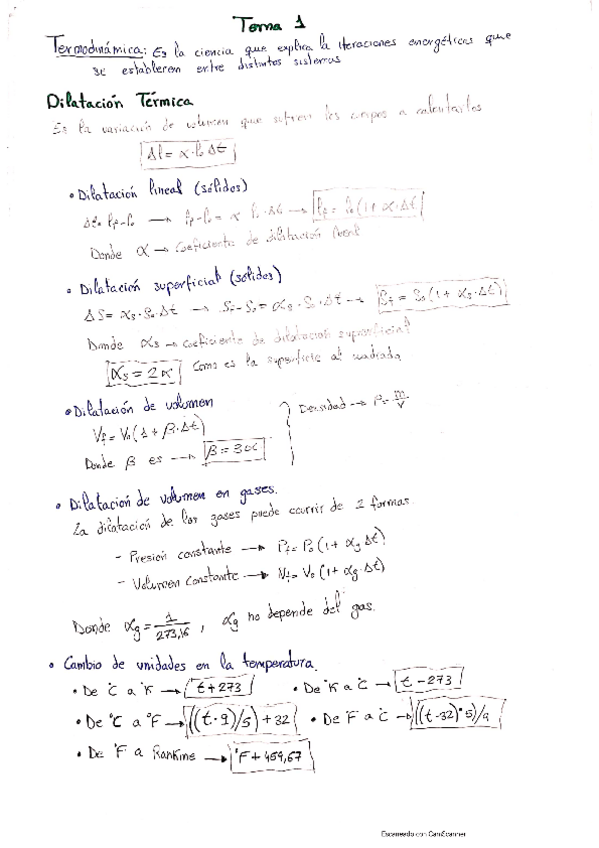 Tema 1
Termodinámica: Es la ciencia que explica la iteraciones energéticas que
se establecen entre distintos sistemas
Dilatación Térmica
Es la variación de volumen que sufren los cuerpos a calentarlos
Δl = α·l₀·Δt
• Dilatación lineal (sólidos)
Δl = lf-l₀ → lf-l₀ = α·l₀·Δt → lf = l₀(1+α·Δt)
Donde α → coeficiente de dilatación lineal
• Dilatación superficial (sólidos)
ΔS = αs·S₀·Δt → Sf-S₀ = αs·S₀·Δt → Sf = S₀(1+αs·Δt)
Donde αs → coeficiente de dilatación superficial
αs = 2α Como es la superficie al cuadrado
• Dilatación de volumen
Vf = V₀(1+β·Δt)
Donde β es → β = 3α
Densidad → ρ = m/v
• Dilatación de volumen en gases.
La dilatación de los gases puede ocurrir de 2 formas.
- Presión constante → Pf = P₀(1+αg Δt)
- Volumen constante → Vf = V₀(1+αg·Δt)
Donde αg = 1/273,16 , αg no depende del gas.
• Cambio de unidades en la temperatura.
• De °C a °K → t+273 • De °K a °C → t-273
• De °C a °F → ((t·9)/5)+32 • De °F a °C → ((t-32)·5)/9
• De °F a Rankine → °F+459,67
Escaneado con CamScanner